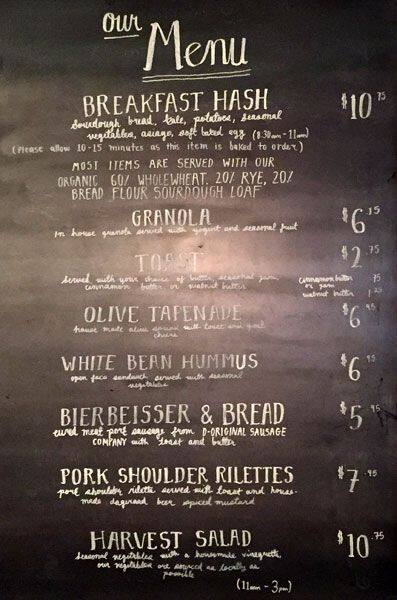 our
Menu
BREAKFAST HASH $10.75
Sourdough bread, kale, potatoes, seasonal
vegetables, asiago, soft baked egg (8:30am-11am)
(Please allow 10-15 minutes as this item is baked to order)
MOST ITEMS ARE SERVED WITH OUR
ORGANIC 60% WHOLEWHEAT, 20% RYE, 20%
BREAD FLOUR SOURDOUGH LOAF
GRANOLA $6.15
in house granola served with yogurt and seasonal fruit
TOAST $2.75
served with your choice of butter, seasonal jam,
cinnamon butter or walnut butter
cinnamon butter .75
or jam
walnut butter 1.25
OLIVE TAPENADE $6
house made olive spread with toast and goat
cheese
WHITE BEAN HUMMUS $6
open face sandwich served with seasonal
vegetables
BIERBEISSER & BREAD $5
cured meat pork sausage from D-ORIGINAL SAUSAGE
COMPANY with toast and butter
PORK SHOULDER RILETTES $7
pork shoulder rilette served with toast and house-
made dageraad beer spiced mustard
HARVEST SALAD $10.75
Seasonal vegetables with a housemade vinegrette,
our vegetables are sourced as locally as
possible
(11am - 3pm)